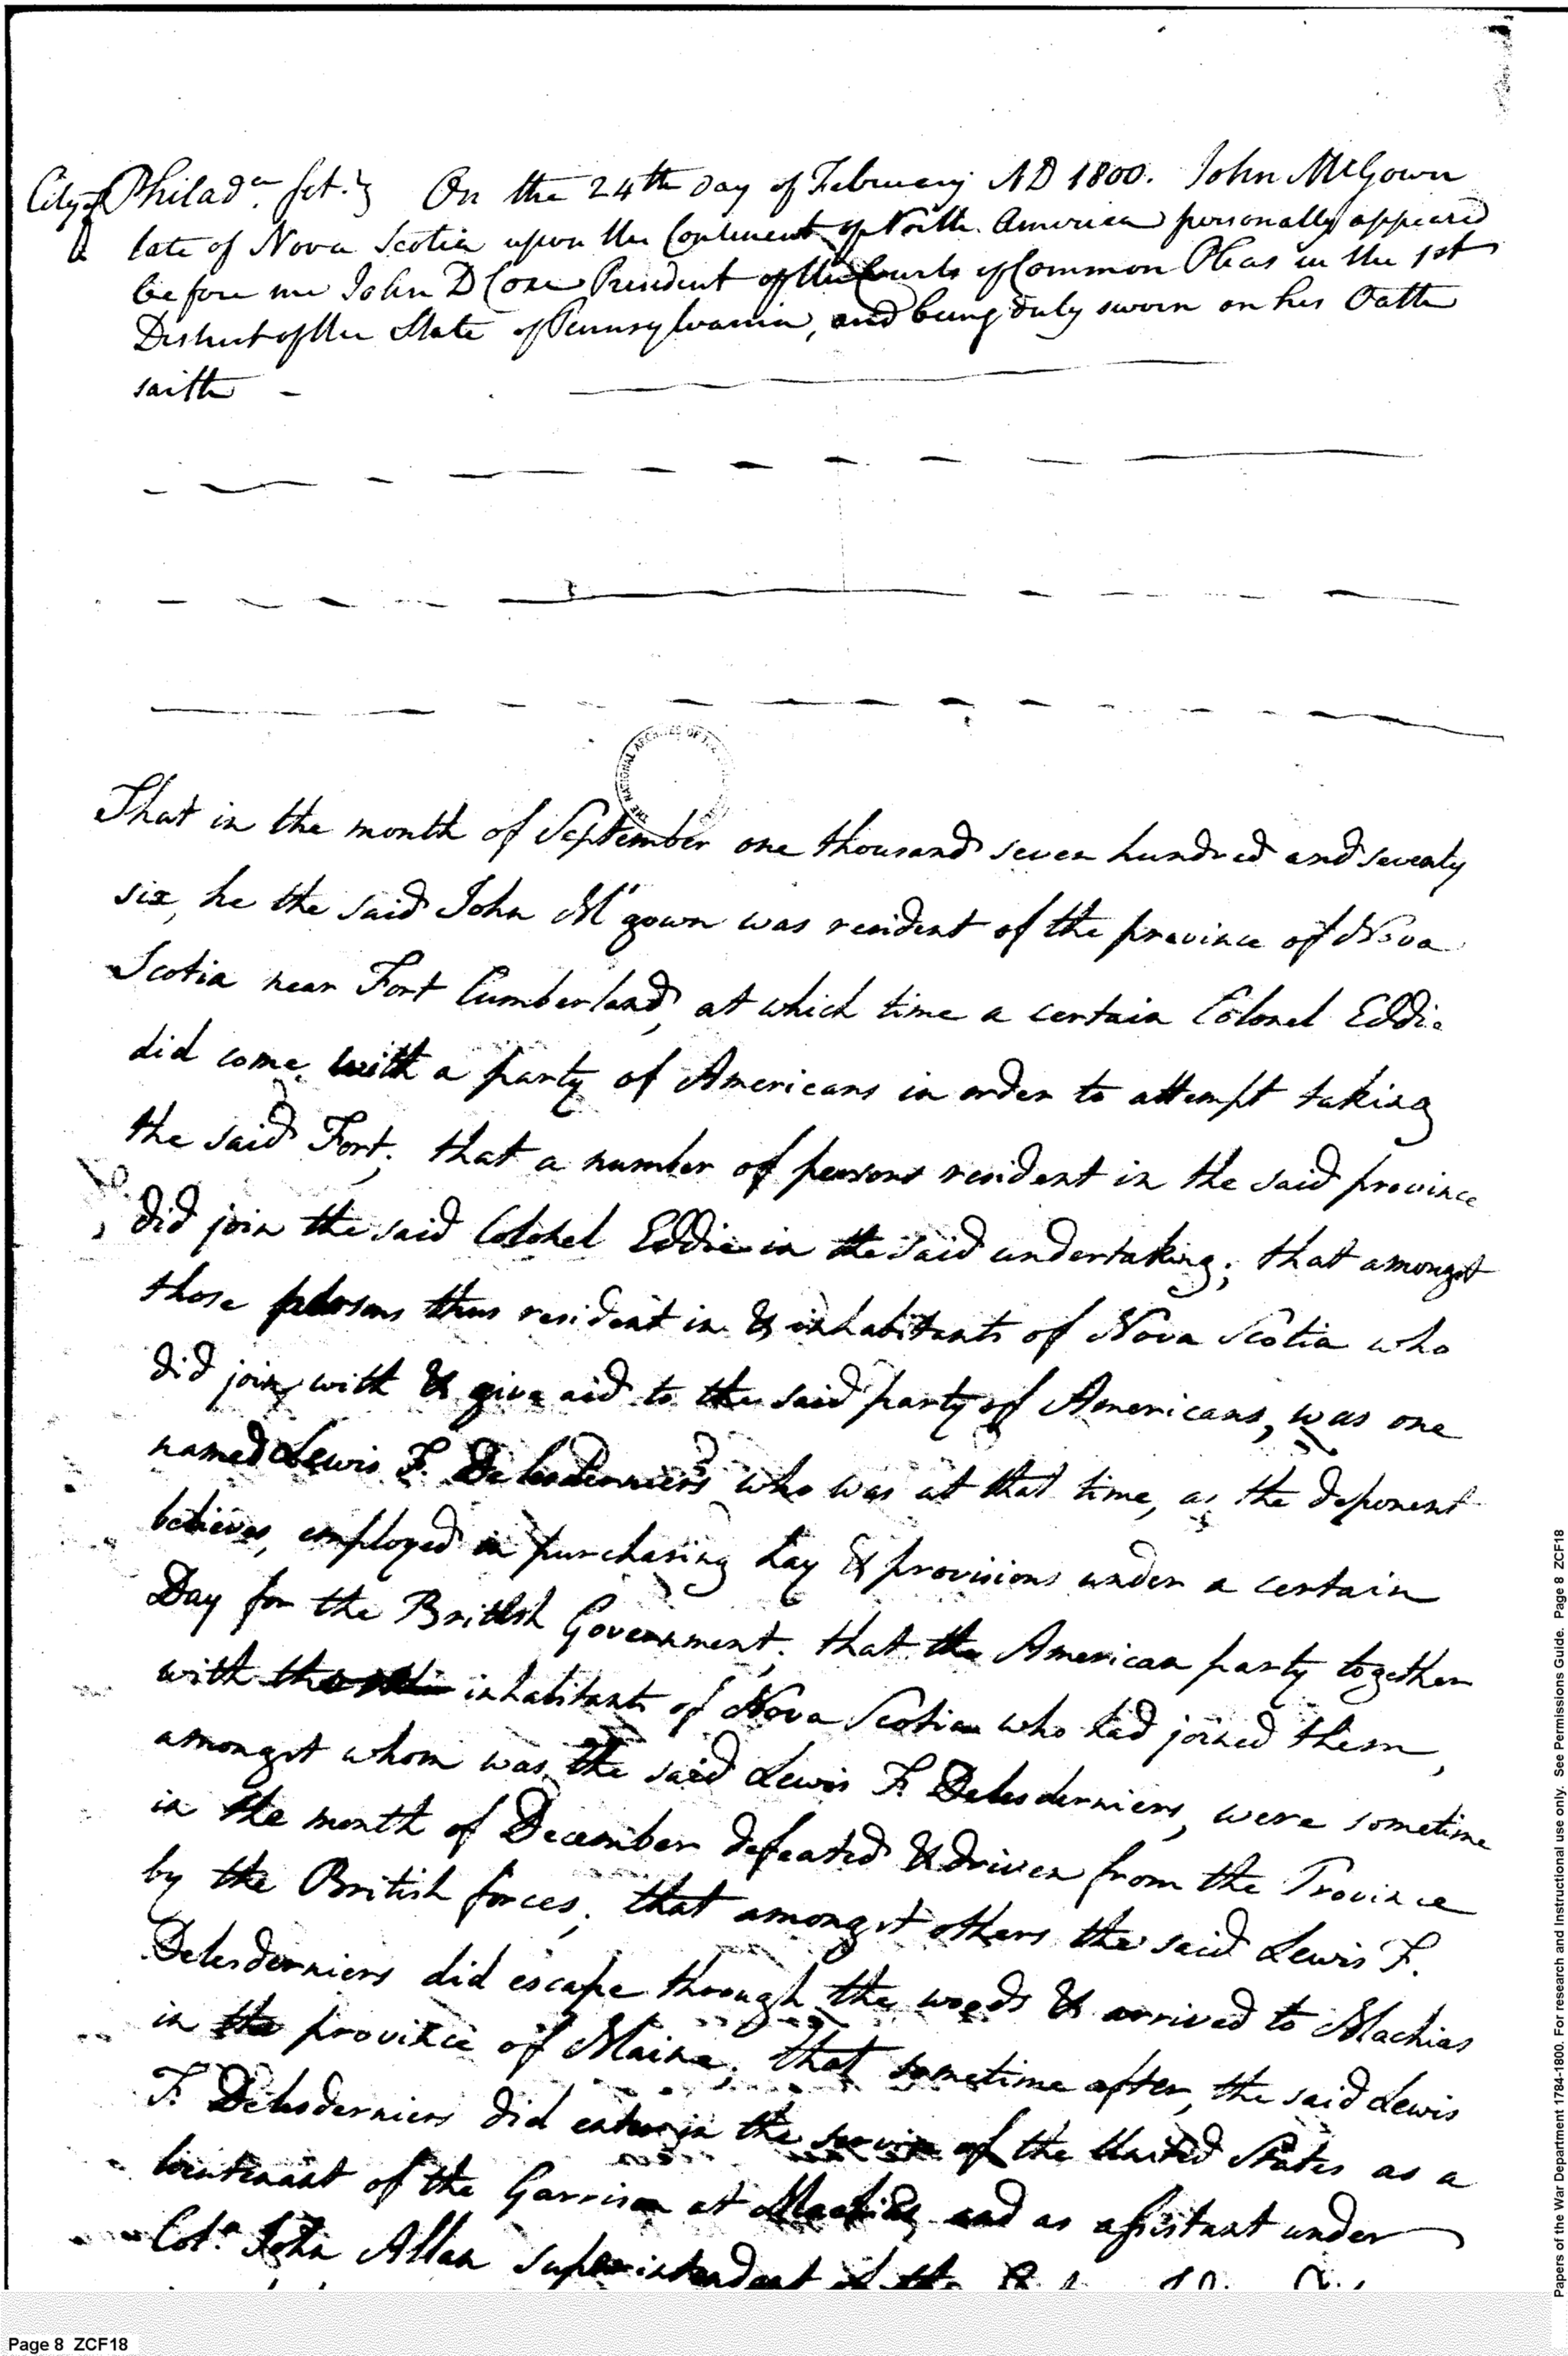 City of Philada. sct. } On the 24th Day of February AD 1800. John McGown
late of Nova Scotia upon the Continent of North America personally appeared
before me John D Coxe President of the Courts of Common Pleas in the 1st
District of the State of Pennsylvania, and being duly sworn on his Oath
saith -
THE NATIONAL ARCHIVES OF THE
That in the month of September one thousand seven hundred and seventy
six, he the said John Mc gown was resident of the province of Nova
Scotia near Fort Cumberland, at which time a certain Colonel Eddie
did come with a party of Americans in order to attempt taking
the said Fort; that a number of persons resident in the said province
did join the said Colonel Eddie in the said undertaking; that amongst
those persons thus resident in & inhabitants of Nova Scotia who
did join with & give aid to the said party of Americans, was one
named Lewis F. Delesderniers who was at that time, as the deponent
believes, employed in purchasing hay & provisions under a certain
Day for the British Government; that the American party together
with inhabitants of Nova Scotia who had joined them,
amongst whom was the said Lewis F. Delesderniers, were sometime
in the month of December defeated & driven from the Province
by the British forces; that amongst others the said Lewis F.
Delesderniers did escape through the woods & arrived to Machias
in the province of Maine; that sometime after, the said Lewis
F. Delesderniers did enter in the service of the United States as a
lieutenant of the Garrison at Machias, and as assistant under
Col. John Allan superintendent of the
Page 8 ZCF18
Papers of the War Department 1784-1800. For research and Instructional use only. See Permissions Guide. Page 8 ZCF18